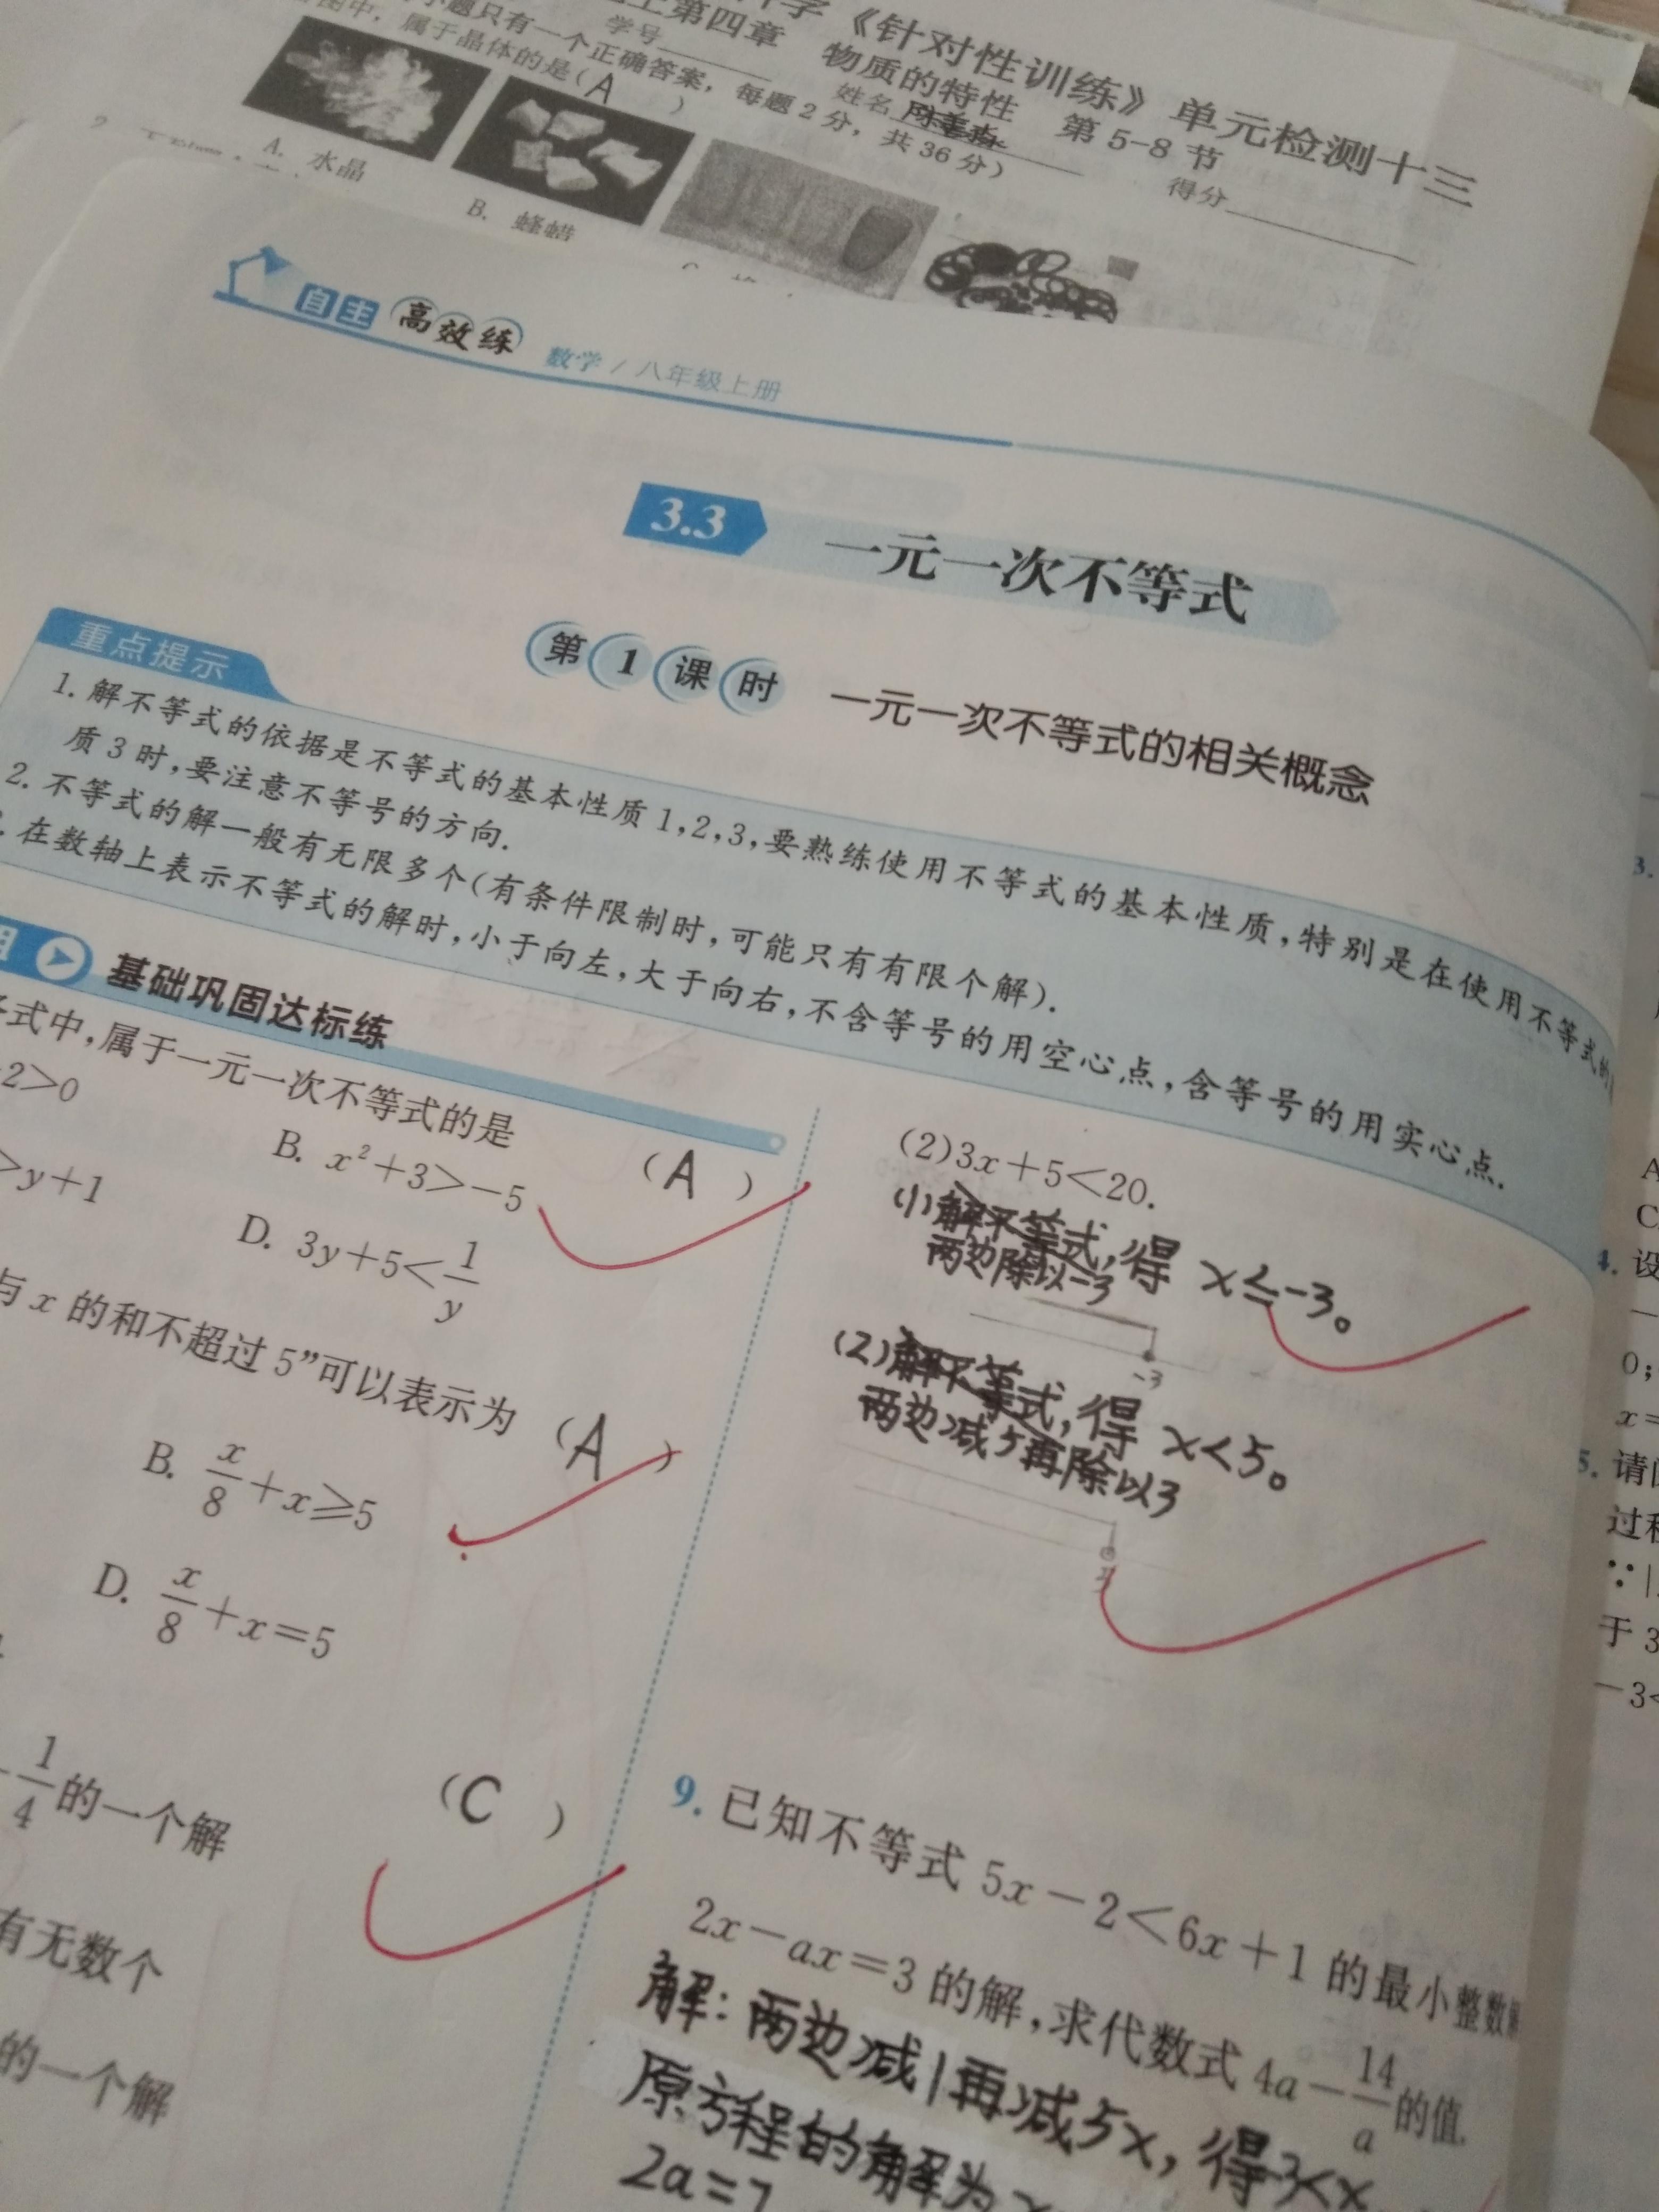 《针对性训练》单元检测十三
第四章 物质的特性 第5-8节
学号 姓名 得分
小题只有一个正确答案,每题2分,共36分)
图中,属于晶体的是(A)
A. 水晶
B. 蜂蜡
自主高效练 数学/八年级上册
3.3 一元一次不等式
第1课时 一元一次不等式的相关概念
重点提示
1. 解不等式的依据是不等式的基本性质1,2,3,要熟练使用不等式的基本性质,特别是在使用不等式的
质3时,要注意不等号的方向.
2. 不等式的解一般有无限多个(有条件限制时,可能只有有限个解).
. 在数轴上表示不等式的解时,小于向左,大于向右,不含等号的用空心点,含等号的用实心点.
基础巩固达标练
式中,属于一元一次不等式的是 (A)
2>0
B. x²+3>-5
>y+1
D. 3y+5<1/y
与x的和不超过5”可以表示为 (A)
B. x/8+x≥5
D. x/8+x=5
(C)
1/4的一个解
有无数个
的一个解
(2)3x+5<20.
(1)解不等式,得 x≤-3。
两边除以-3
-3
(2)解不等式,得 x<5。
两边减5再除以3
9. 已知不等式5x-2<6x+1的最小整数
2x-ax=3的解,求代数式4a-14/a的值.
解:两边减1再减5x,得-3<x
原方程的解为x
2a=7
3.
A
C
4. 设
0;
x=
5. 请
过程
∵|
于3
-3<